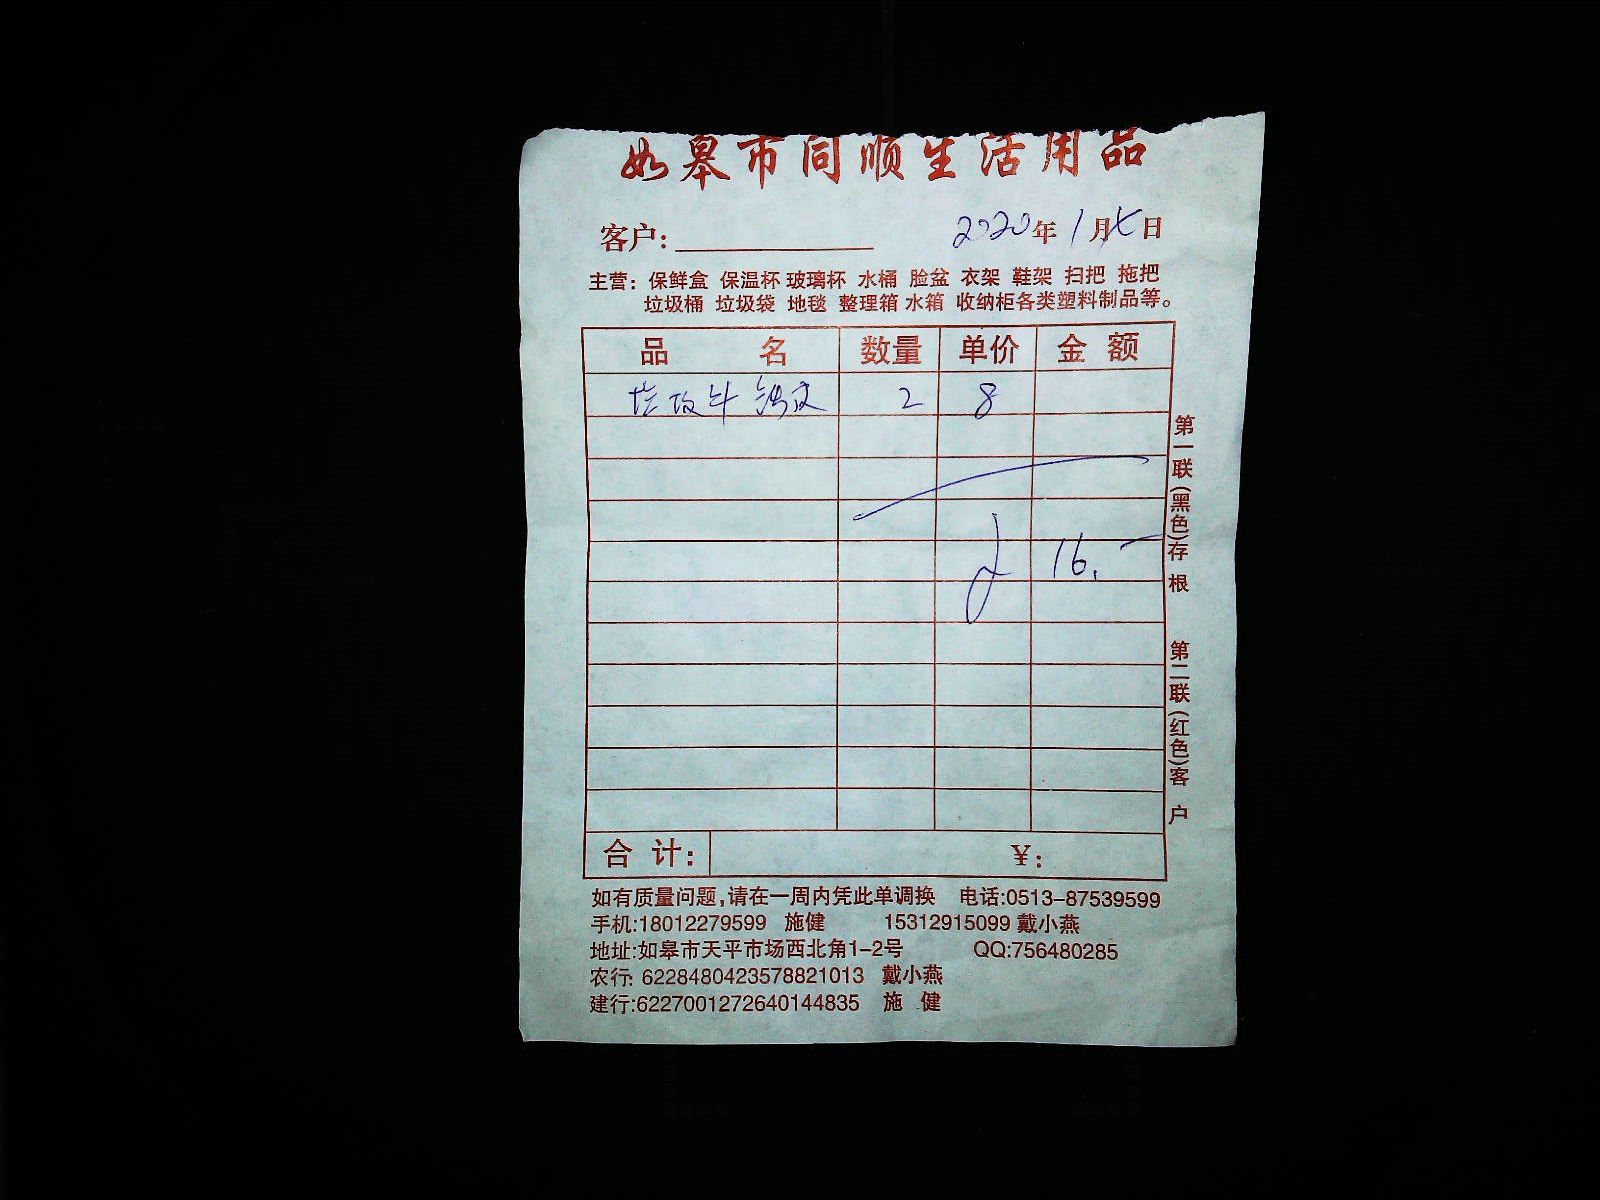 如皋市同顺生活用品
客户: 2020年1月7日
主营: 保鲜盒 保温杯 玻璃杯 水桶 脸盆 衣架 鞋架 扫把 拖把
垃圾桶 垃圾袋 地毯 整理箱 水箱 收纳柜各类塑料制品等。
品名 数量 单价 金额
垃圾斗 铁皮 2 8
16.-
第一联(黑色)存根
第二联(红色)客户
合计: ¥:
如有质量问题,请在一周内凭此单调换 电话:0513-87539599
手机:18012279599 施健 15312915099 戴小燕
地址:如皋市天平市场西北角1-2号 QQ:756480285
农行: 6228480423578821013 戴小燕
建行:6227001272640144835 施健